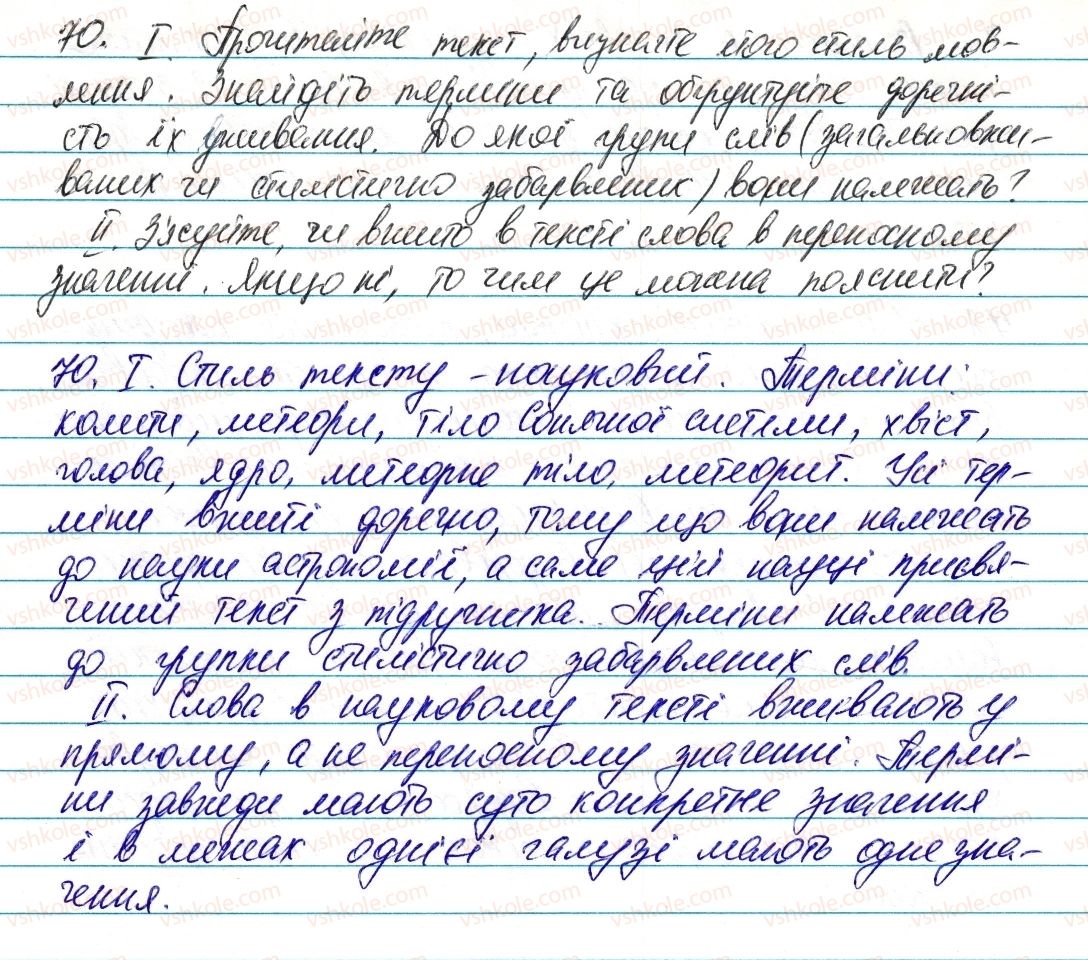 70. I. Прочитайте текст, визначте його стиль мов-
лення. Знайдіть терміни та обґрунтуйте доречні-
сть їх уживання. До якої групи слів (загальновжи-
ваних чи стилістично забарвлених) вони належать?
II. З'ясуйте, чи вжито в тексті слова в переносному
значенні. Якщо ні, то чим це можна пояснити?
70. I. Стиль тексту - науковий. Терміни:
комети, метеори, тіло Сонячної системи, хвіст,
голова, ядро, метеорне тіло, метеорит. Усі тер-
міни вжиті доречно, тому що вони належать
до науки астрономії, а саме цій науці присвя-
чений текст з підручника. Терміни належать
до групи стилістично забарвлених слів.
II. Слова в науковому тексті вживають у
прямому, а не переносному значенні. Термі-
ни завжди мають суто конкретне значення
і в межах однієї галузі мають одне зна-
чення.